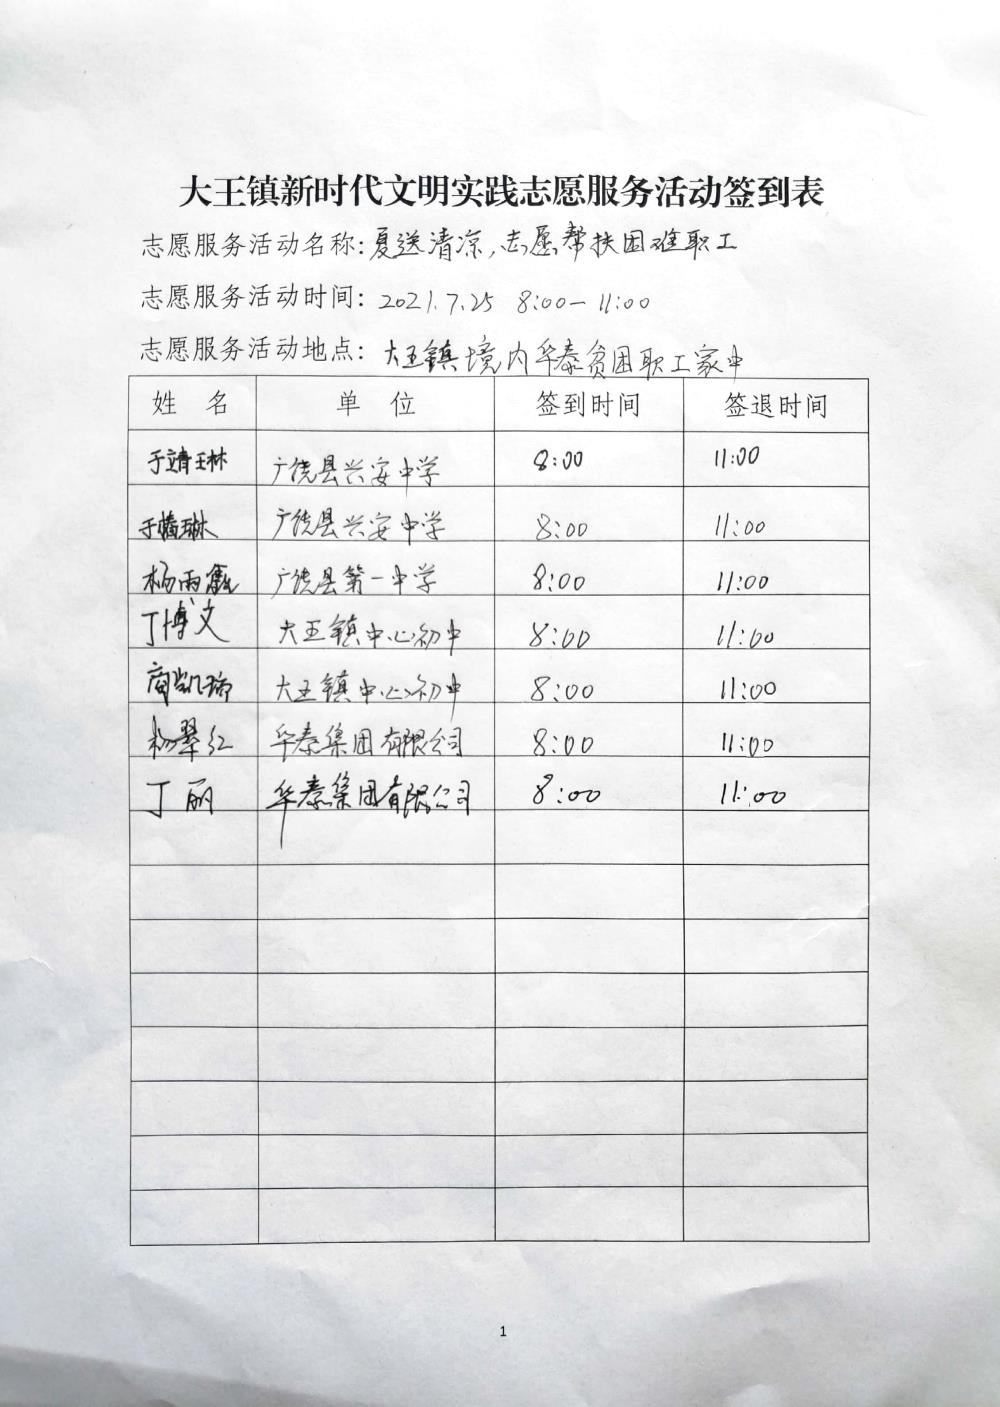 大王镇新时代文明实践志愿服务活动签到表
志愿服务活动名称:夏送清凉,志愿帮扶困难职工
志愿服务活动时间: 2021.7.25 8:00—11:00
志愿服务活动地点: 大王镇境内华泰贫困职工家中
姓 名 单 位 签到时间 签退时间
于靖琳 广饶县兴安中学 8:00 11:00
于琳 广饶县兴安中学 8:00 11:00
杨雨鑫 广饶县第一中学 8:00 11:00
丁博文 大王镇中心初中 8:00 11:00
商凯瑞 大王镇中心初中 8:00 11:00
杨翠红 华泰集团有限公司 8:00 11:00
丁丽 华泰集团有限公司 8:00 11:00
1